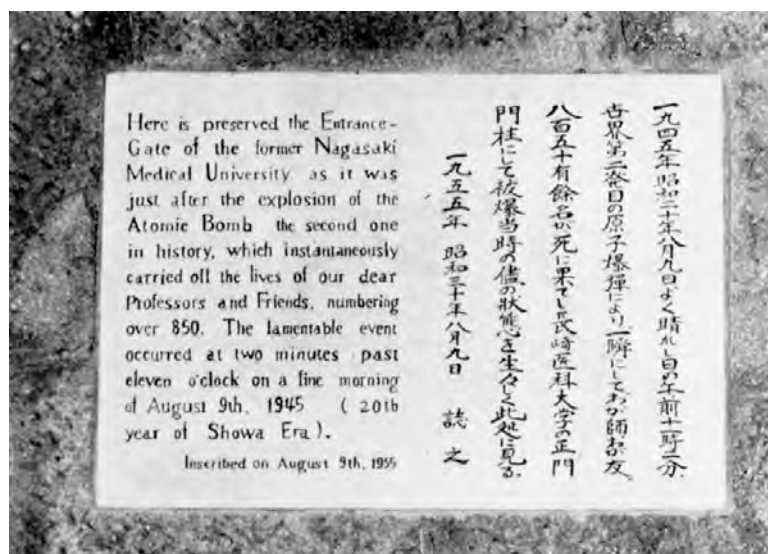 Here is preserved the Entrance-
Gate of the former Nagasaki
Medical University as it was
just after the explosion of the
Atomic Bomb the second one
in history, which instantaneously
carried off the lives of our dear
Professors and Friends, numbering
over 850. The lamentable event
occurred at two minutes past
eleven o'clock on a fine morning
of August 9th, 1945 ( 20th
year of Showa Era ).
Inscribed on August 9th, 1955
一九四五年昭和二十年八月九日よく晴れし日の午前十一時二分、
世界第二発目の原子爆弾により一瞬にしてわが師わが友、
八百五十有餘名が死に果てし長崎医科大学の正門
門柱にして被爆当時の儘の状態を生々しく此処に見る。
一九五五年 昭和三十年八月九日 誌之